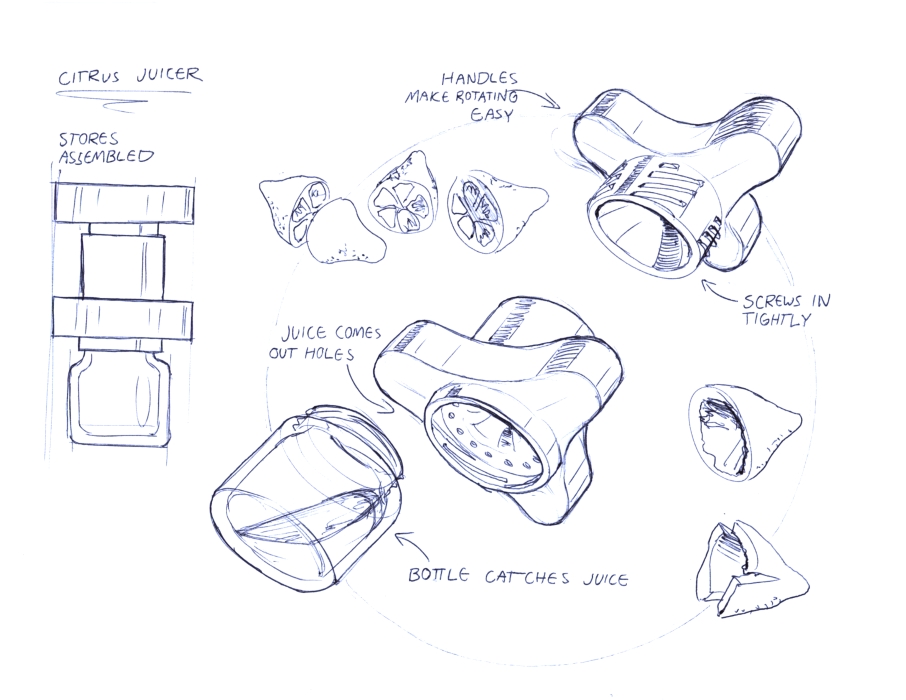 CITRUS JUICER
STORES
ASSEMBLED
HANDLES
MAKE ROTATING
EASY
SCREWS IN
TIGHTLY
JUICE COMES
OUT HOLES
BOTTLE CATCHES JUICE